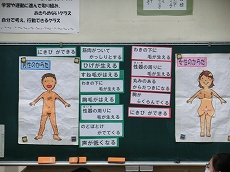 学習や運動に進んで取り組み、
おたがいのないクラス
自分で考え、行動できるクラス
にきび ができる
筋肉がついて
がっしりとする
ひげが生える
すね毛がはえる
わきの下に
毛が生える
性器の周りに
毛が生える
胸毛がはえる
のどぼとけ
がでてくる
声が低くなる
わきの下に
毛が生える
性器の周りに
毛が生える
丸みのある
からだつきになる
胸が
ふくらんでくる
にきび ができる
男性のからだ
女性のからだ